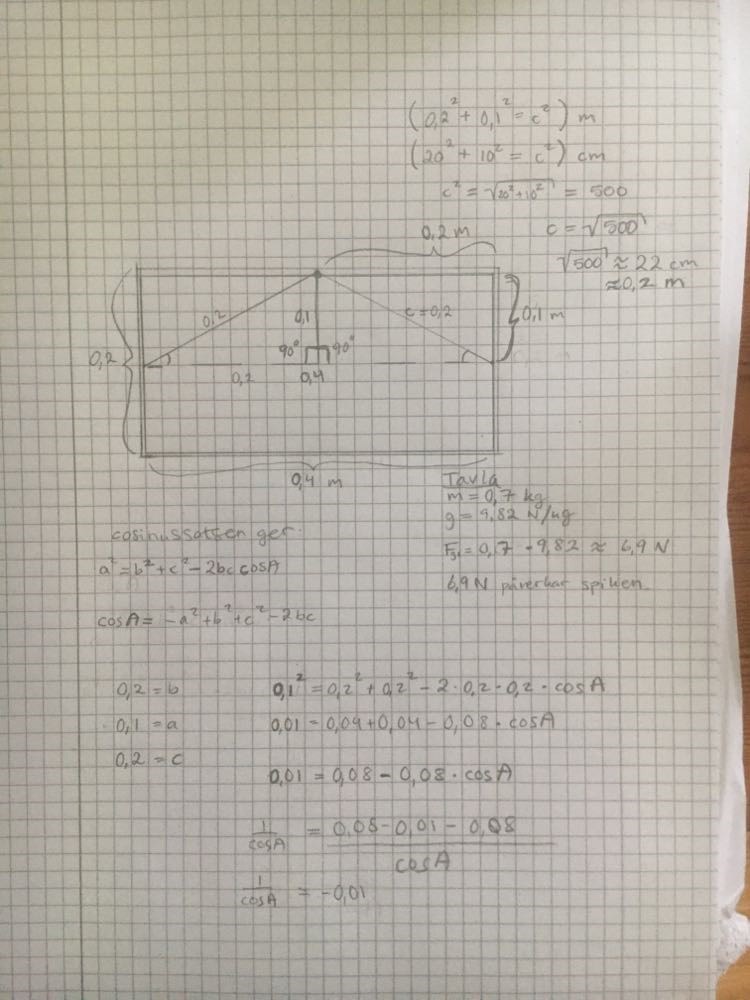 (0,2² + 0,1² = c²) m
(20² + 10² = c²) cm
c² = √20²+10² = 500
c = √500
√500 ≈ 22 cm
≈ 0,2 m
0,2 m
0,2
0,2
0,1
c = 0,2
0,1 m
90°
90°
0,2
0,4
0,4 m
Tavla
m = 0,7 kg
g = 9,82 N/kg
= 0,7 · 9,82 ≈ 6,9 N
6,9 N påverkar spiken
cosinussatsen ger:
a² = b² + c² - 2bc cosA
cosA = -a² + b² + c² - 2bc
0,2 = b
0,1 = a
0,2 = c
0,1² = 0,2² + 0,2² - 2 · 0,2 · 0,2 · cosA
0,01 = 0,04 + 0,04 - 0,08 · cosA
0,01 = 0,08 - 0,08 · cosA
1/cosA = 0,08 - 0,01 - 0,08 / cosA
1/cosA = -0,01